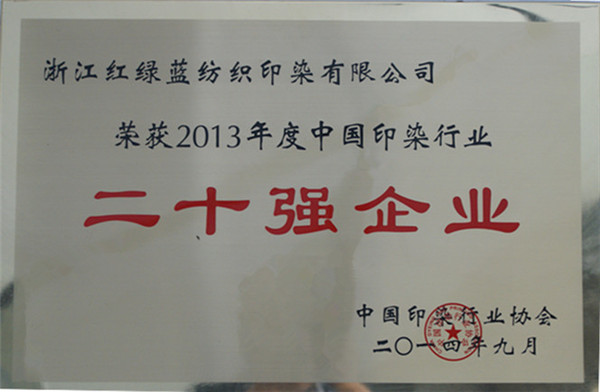 浙江红绿蓝纺织印染有限公司
荣获2013年度中国印染行业
二十强企业
中国印染行业协会
二〇一四年九月